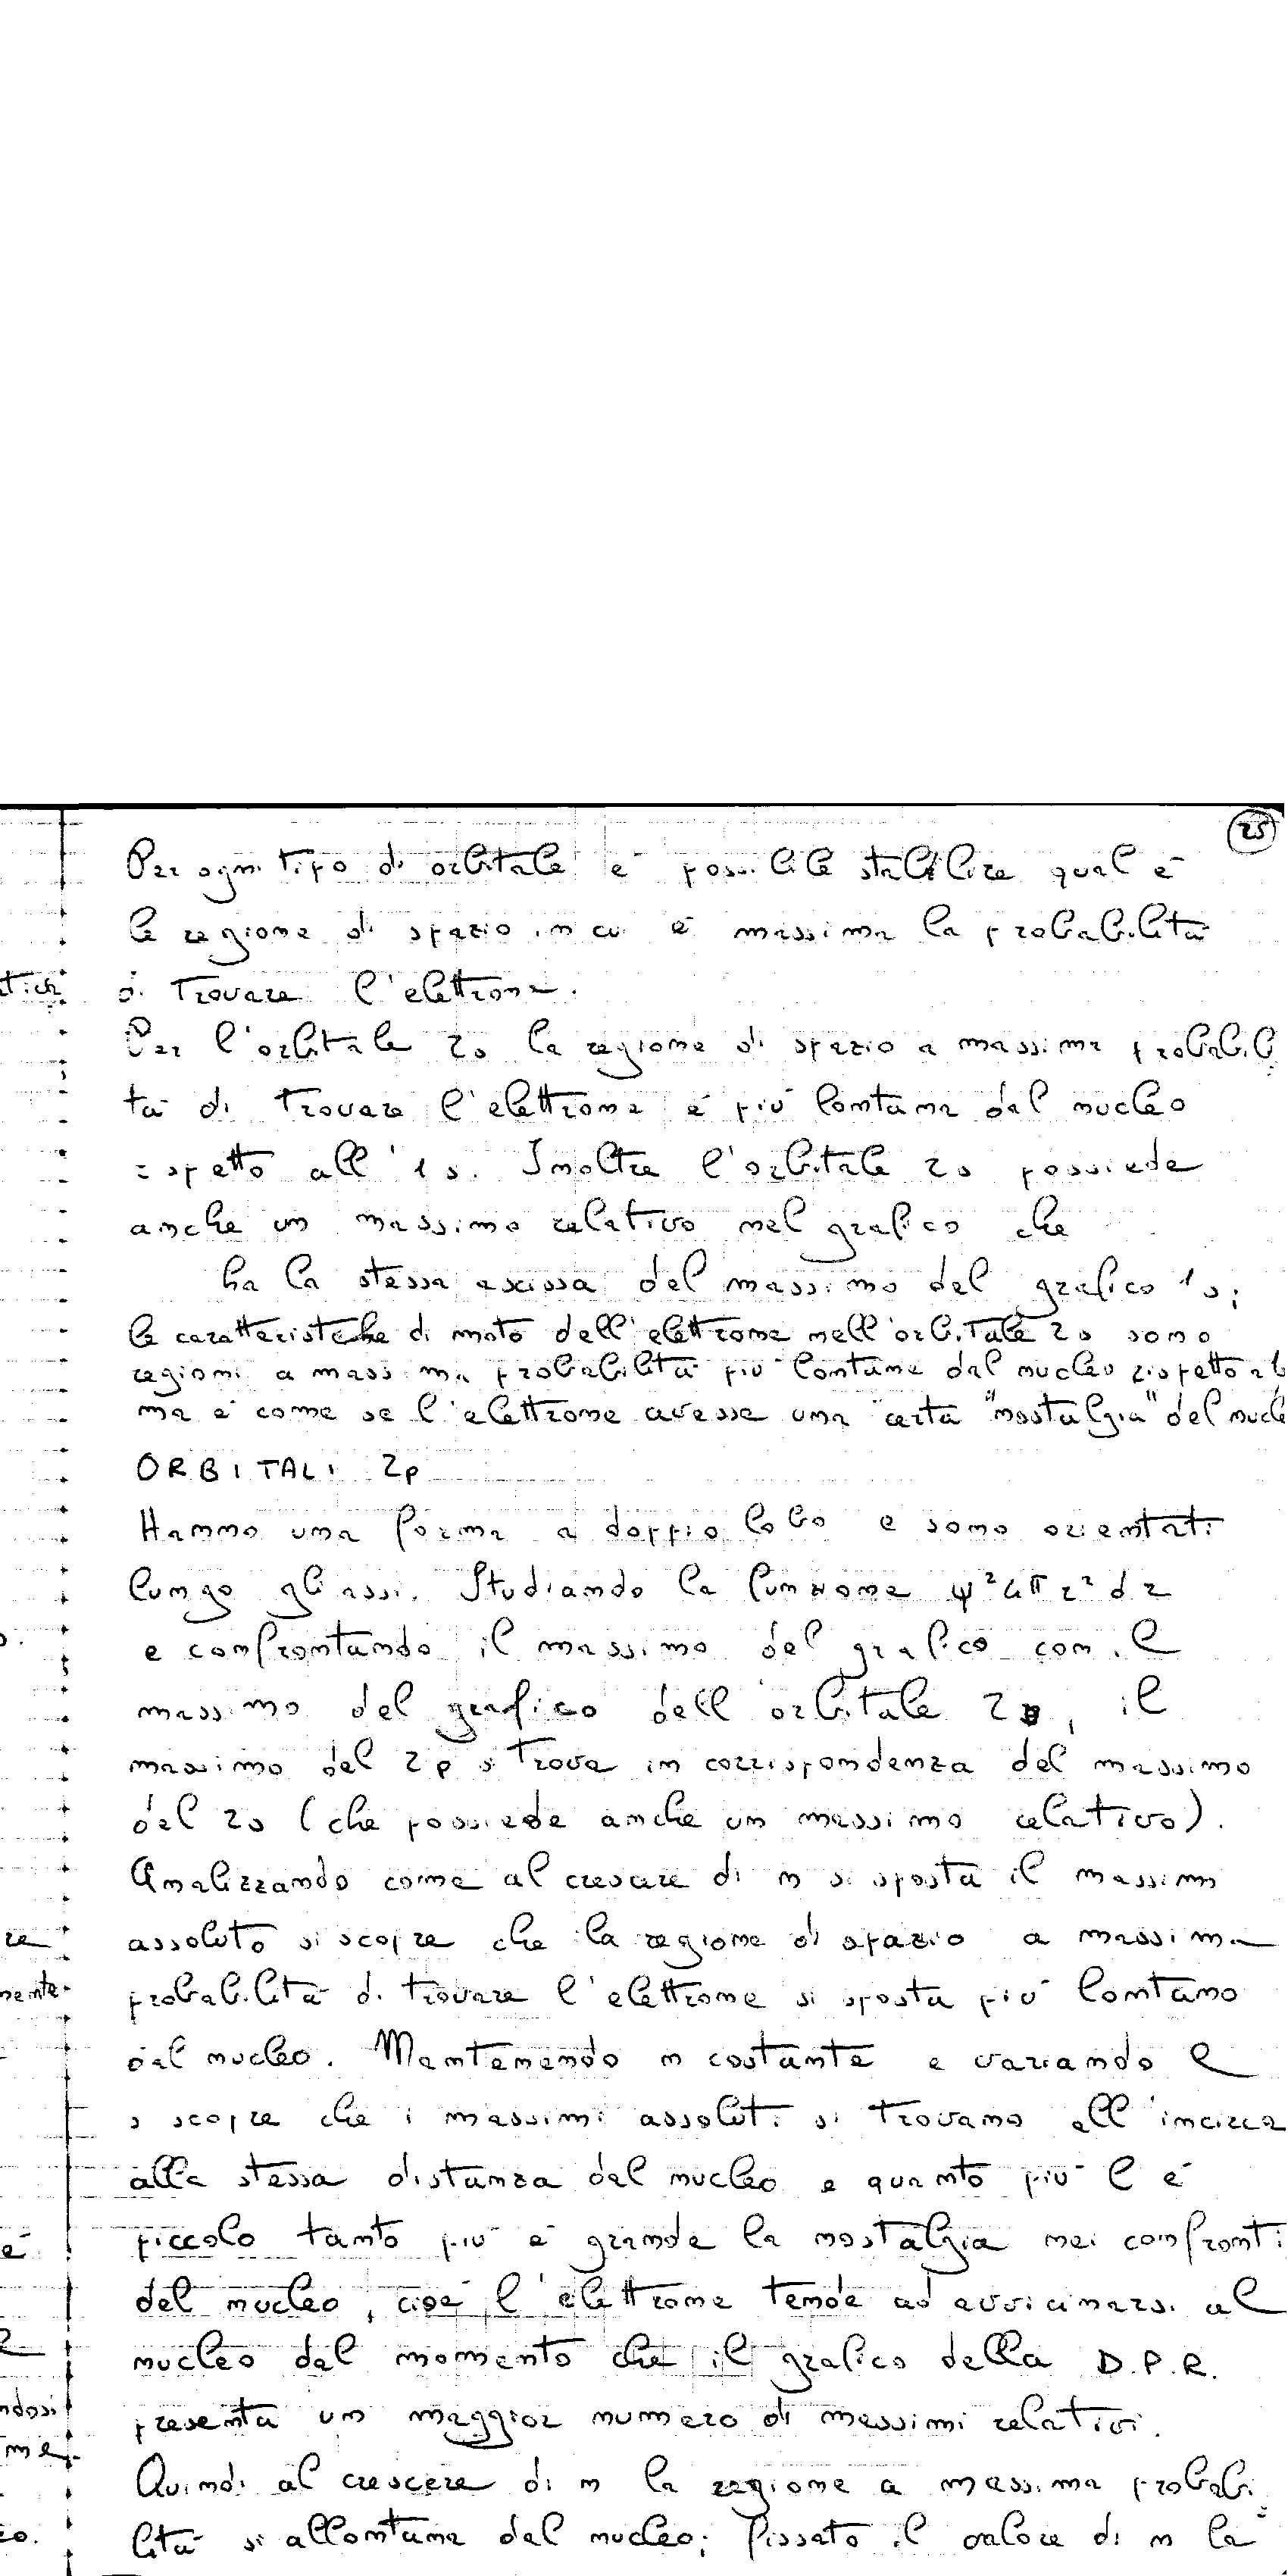 25
Per ogni tipo di orbitale è possibile stabilire qual è
la regione di spazio in cui è massima la probabilità
di trovare l'elettrone.
Per l'orbitale 2s la regione di spazio a massima probabili
tà di trovare l'elettrone è più lontana dal nucleo
rispetto all'1s. Inoltre l'orbitale 2s possiede
anche un massimo relativo nel grafico che
ha la stessa ascissa del massimo del grafico 1s;
le caratteristiche di moto dell'elettrone nell'orbitale 2s sono
regioni a massima probabilità più lontane dal nucleo rispetto al
ma è come se l'elettrone avesse una certa "nostalgia" del nucle
ORBITALI 2p
Hanno una forma a doppio lobo e sono orientati
lungo gli assi. Studiando la funzione ψ²4πr²dr
e confrontando il massimo del grafico con il
massimo del grafico dell'orbitale 2s, il
massimo del 2p si trova in corrispondenza del massimo
del 2s (che possiede anche un massimo relativo).
Analizzando come al crescere di n si sposta il massimo
assoluto si scopre che la regione di spazio a massima
probabilità di trovare l'elettrone si sposta più lontano
dal nucleo. Mantenendo n costante e variando l
si scopre che i massimi assoluti si trovano all'incirca
alla stessa distanza dal nucleo e quanto più l è
piccolo tanto più è grande la nostalgia nei confronti
del nucleo, cioè l'elettrone tende ad avvicinarsi al
nucleo dal momento che il grafico della D.P.R.
presenta un maggior numero di massimi relativi.
Quindi al crescere di n la regione a massima probabi
lità si allontana dal nucleo; fissato il valore di n la